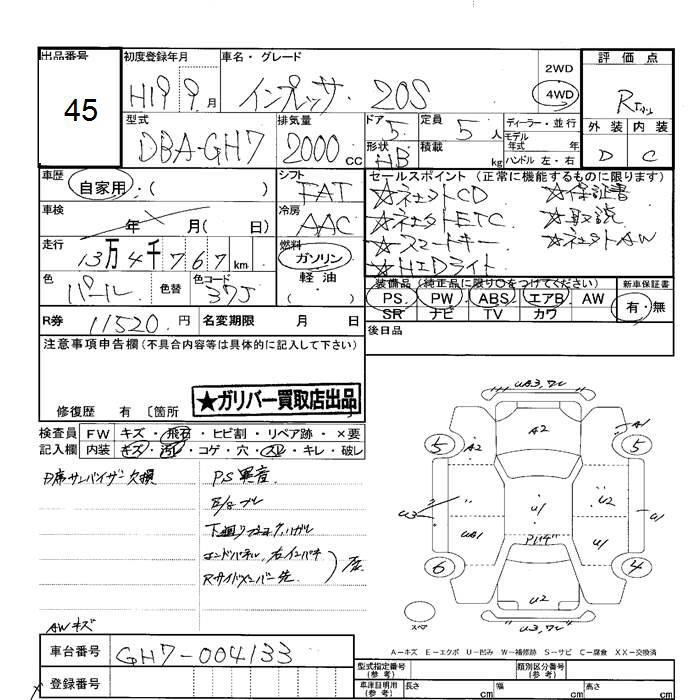 出品番号
45
初度登録年月
H19 9月
車名・グレード
インプレッサ 20S
2WD
4WD
評価点
R
外装 内装
D C
型式
DBA-GH7
排気量
2000 CC
ドア 5
形状 HB
定員 5人
積載 kg
ディーラー・並行
モデル年式 年
ハンドル 左・右
車歴
自家用・( )
車検
年 月( 日)
走行
13万4千767km
色
パール
色替
色コード
37J
シフト
FAT
冷房
AAC
燃料
ガソリン
軽油
( )
セールスポイント (正常に機能するものに限ります)
☆ CD ☆保証書
☆ ETC ☆取説
☆スマートキー ☆ AW
☆HIDライト
装備品 (純正品に限り○をつけてください)
PS PW ABS エアB AW
SR ナビ TV カワ
新車保証書
有・無
後日品
R券 11520円
名変期限 月 日
注意事項申告欄(不具合内容等は具体的に記入して下さい)
★ガリバー買取店出品
修復歴 有 〔箇所
検査員記入欄
FW キズ・飛石・ヒビ割・リペア跡・×要
内装 キズ・汚れ・コゲ・穴・スレ・キレ・破レ
サンバイザー欠損
PS異音
AWキズ
A2
A2
A1
5
5
U3
U1
U2
U1
U1
6
4
U2
スペア
A-キズ E-エクボ U-凹み W-補修跡 S-サビ C-腐食 XX-交換済
車台番号
GH7-004133
登録番号
型式指定番号(参考)
類別区分番号(参考)
車庫証明用(参考)
長さ cm
幅 cm
高さ cm